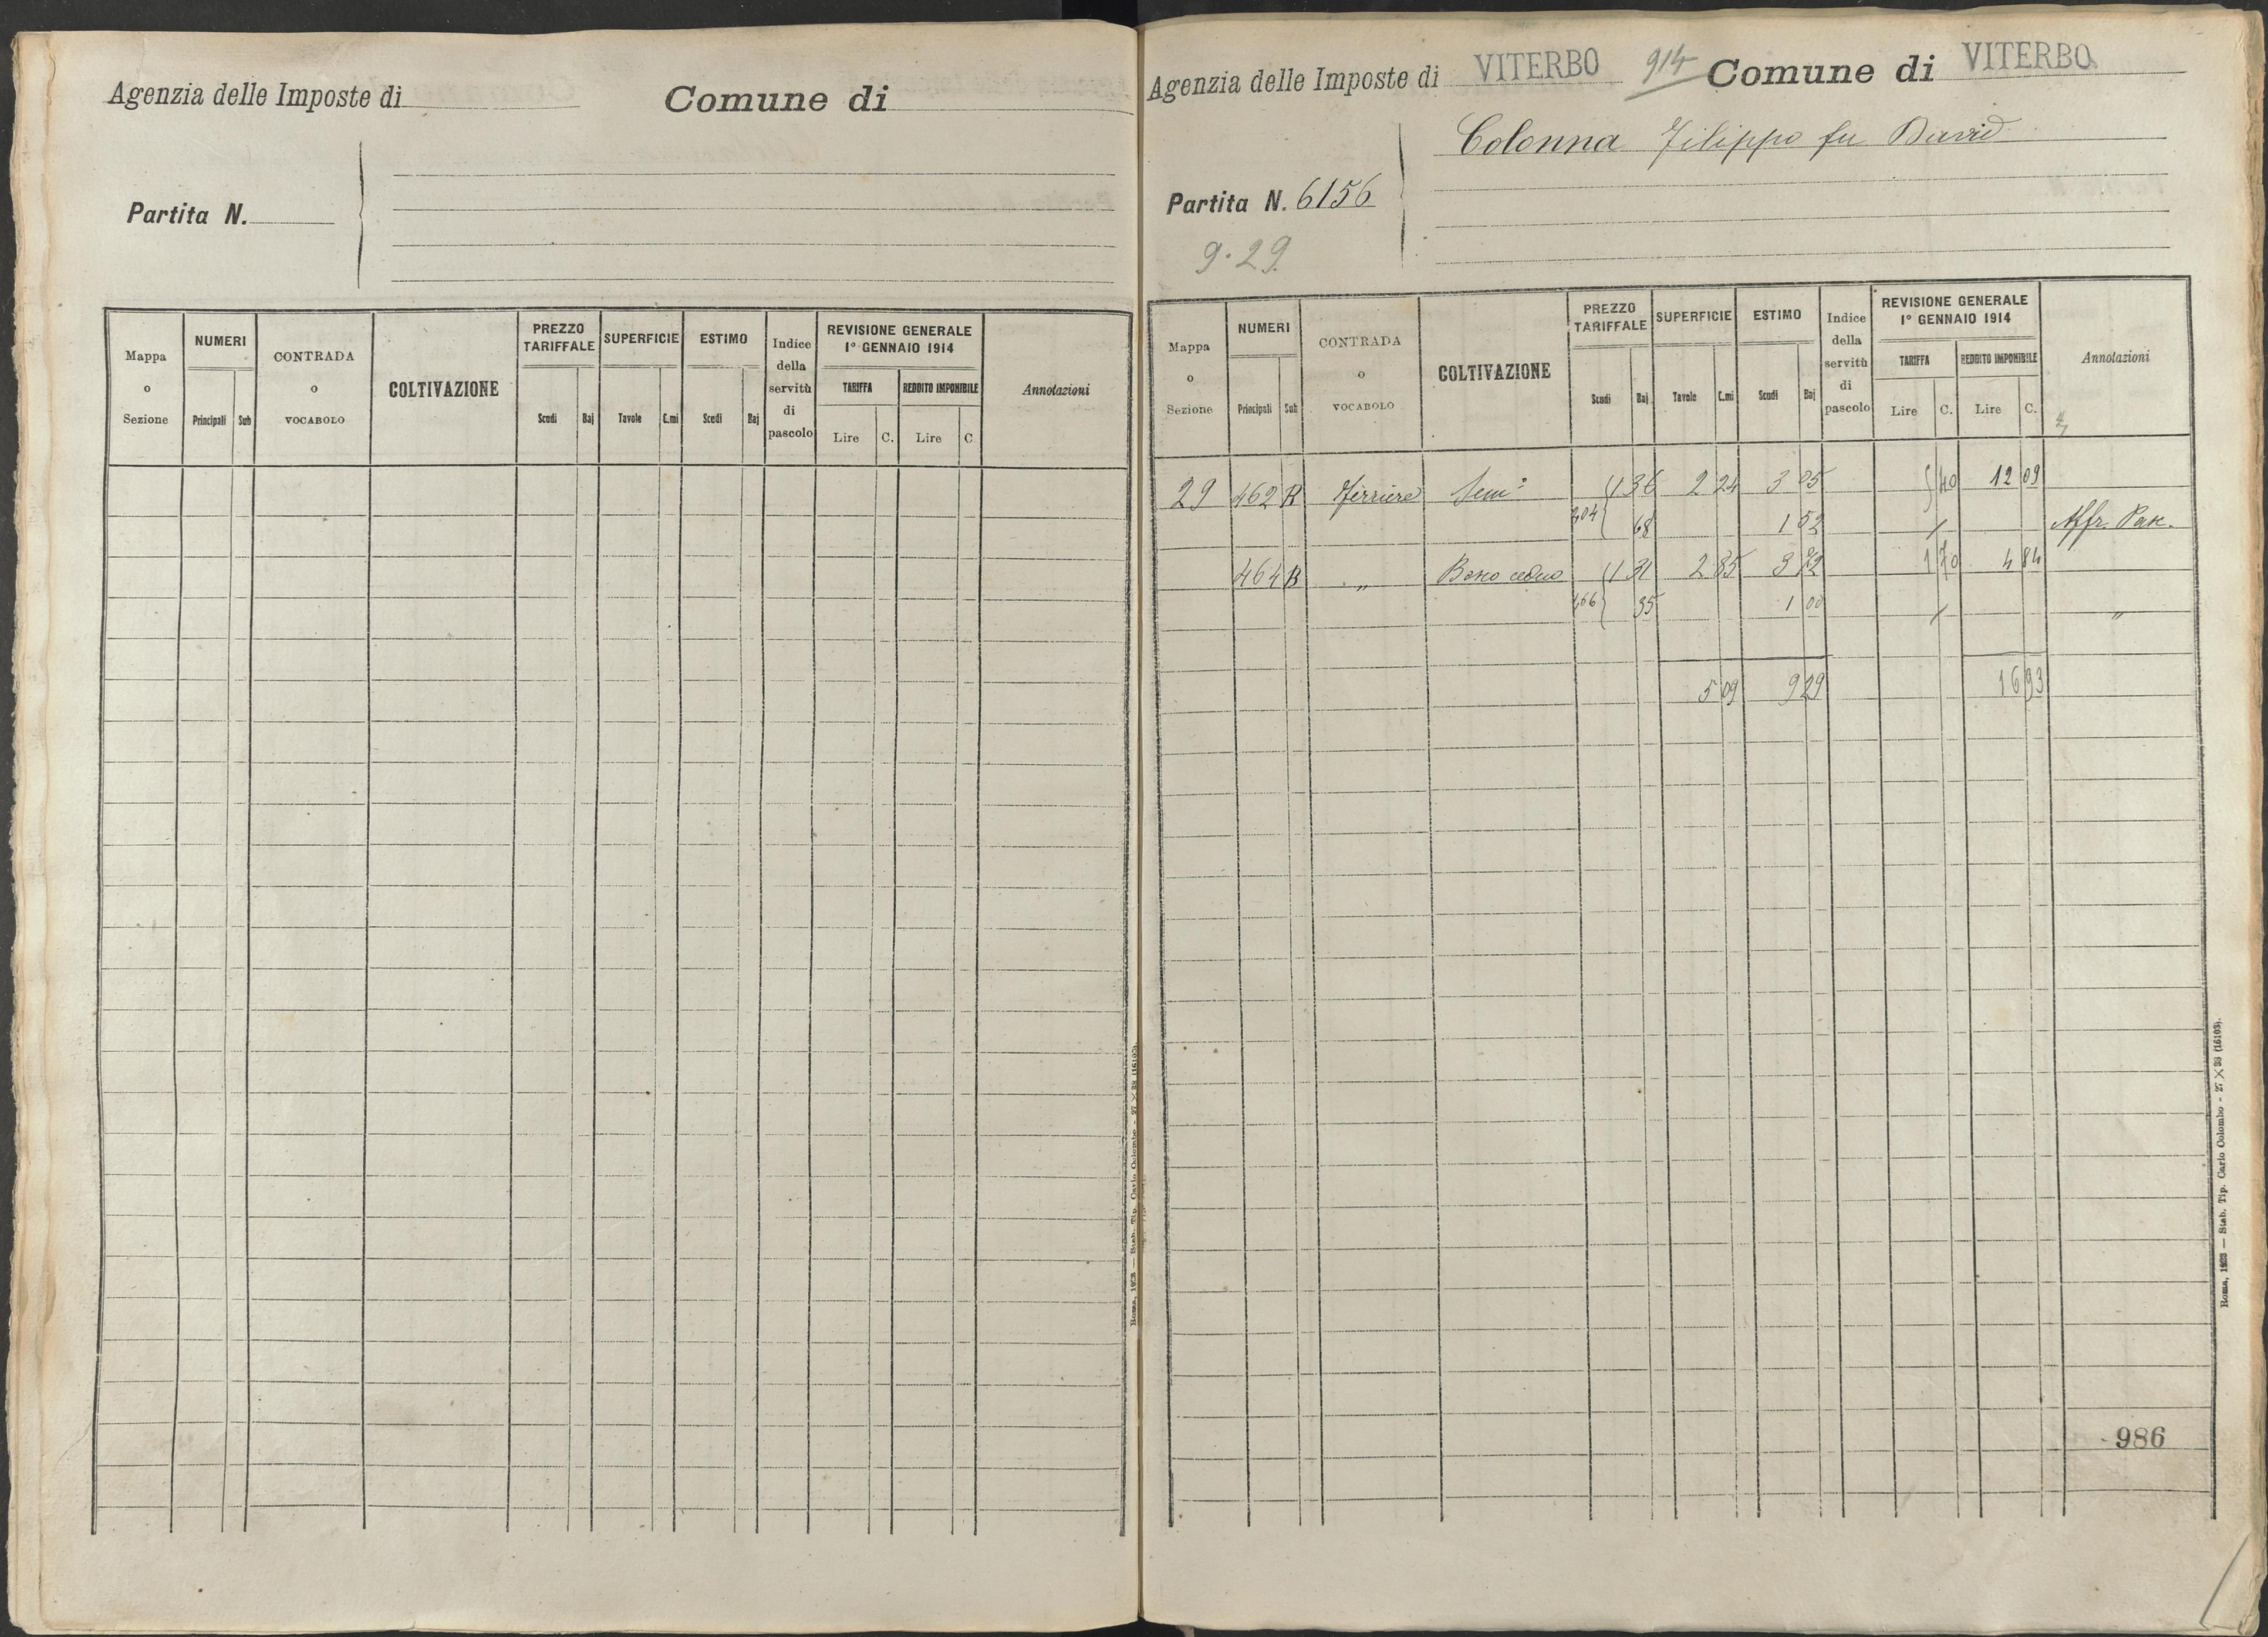 Agenzia delle Imposte di
Comune di
Partita N.
Mappa o Sezione
NUMERI
Principali Sub
CONTRADA o VOCABOLO
COLTIVAZIONE
PREZZO TARIFFALE
Scudi Baj
SUPERFICIE
Tavole C.mi
ESTIMO
Scudi Baj
Indice della servitù di pascolo
REVISIONE GENERALE
1° GENNAIO 1914
TARIFFA REDDITO IMPONIBILE
Lire C. Lire C
Annotazioni
Roma, 1923 — Stab. Tip. Carlo Colombo - 27 × 38 (16103).
Agenzia delle Imposte di VITERBO 914 Comune di VITERBO
Colonna Filippo fu David
Partita N. 6156
9.29
Mappa o Sezione
NUMERI
Principali Sub
CONTRADA o VOCABOLO
COLTIVAZIONE
PREZZO TARIFFALE
Scudi Baj
SUPERFICIE
Tavole C.mi
ESTIMO
Scudi Baj
Indice della servitù di pascolo
REVISIONE GENERALE
1° GENNAIO 1914
TARIFFA REDDITO IMPONIBILE
Lire C. Lire C.
Annotazioni
29 462 R Ferriere Sem° 1 36 2 24 3 05 5 40 12 09
2,04 68 1 52 Affr. Pas.
464 B „ Bosco ceduo 1 31 2 85 3 72 1 70 4 84
1,66 35 1 00 „
5 09 9 29 16 93
986
Roma, 1923 — Stab. Tip. Carlo Colombo - 27 × 38 (16103).